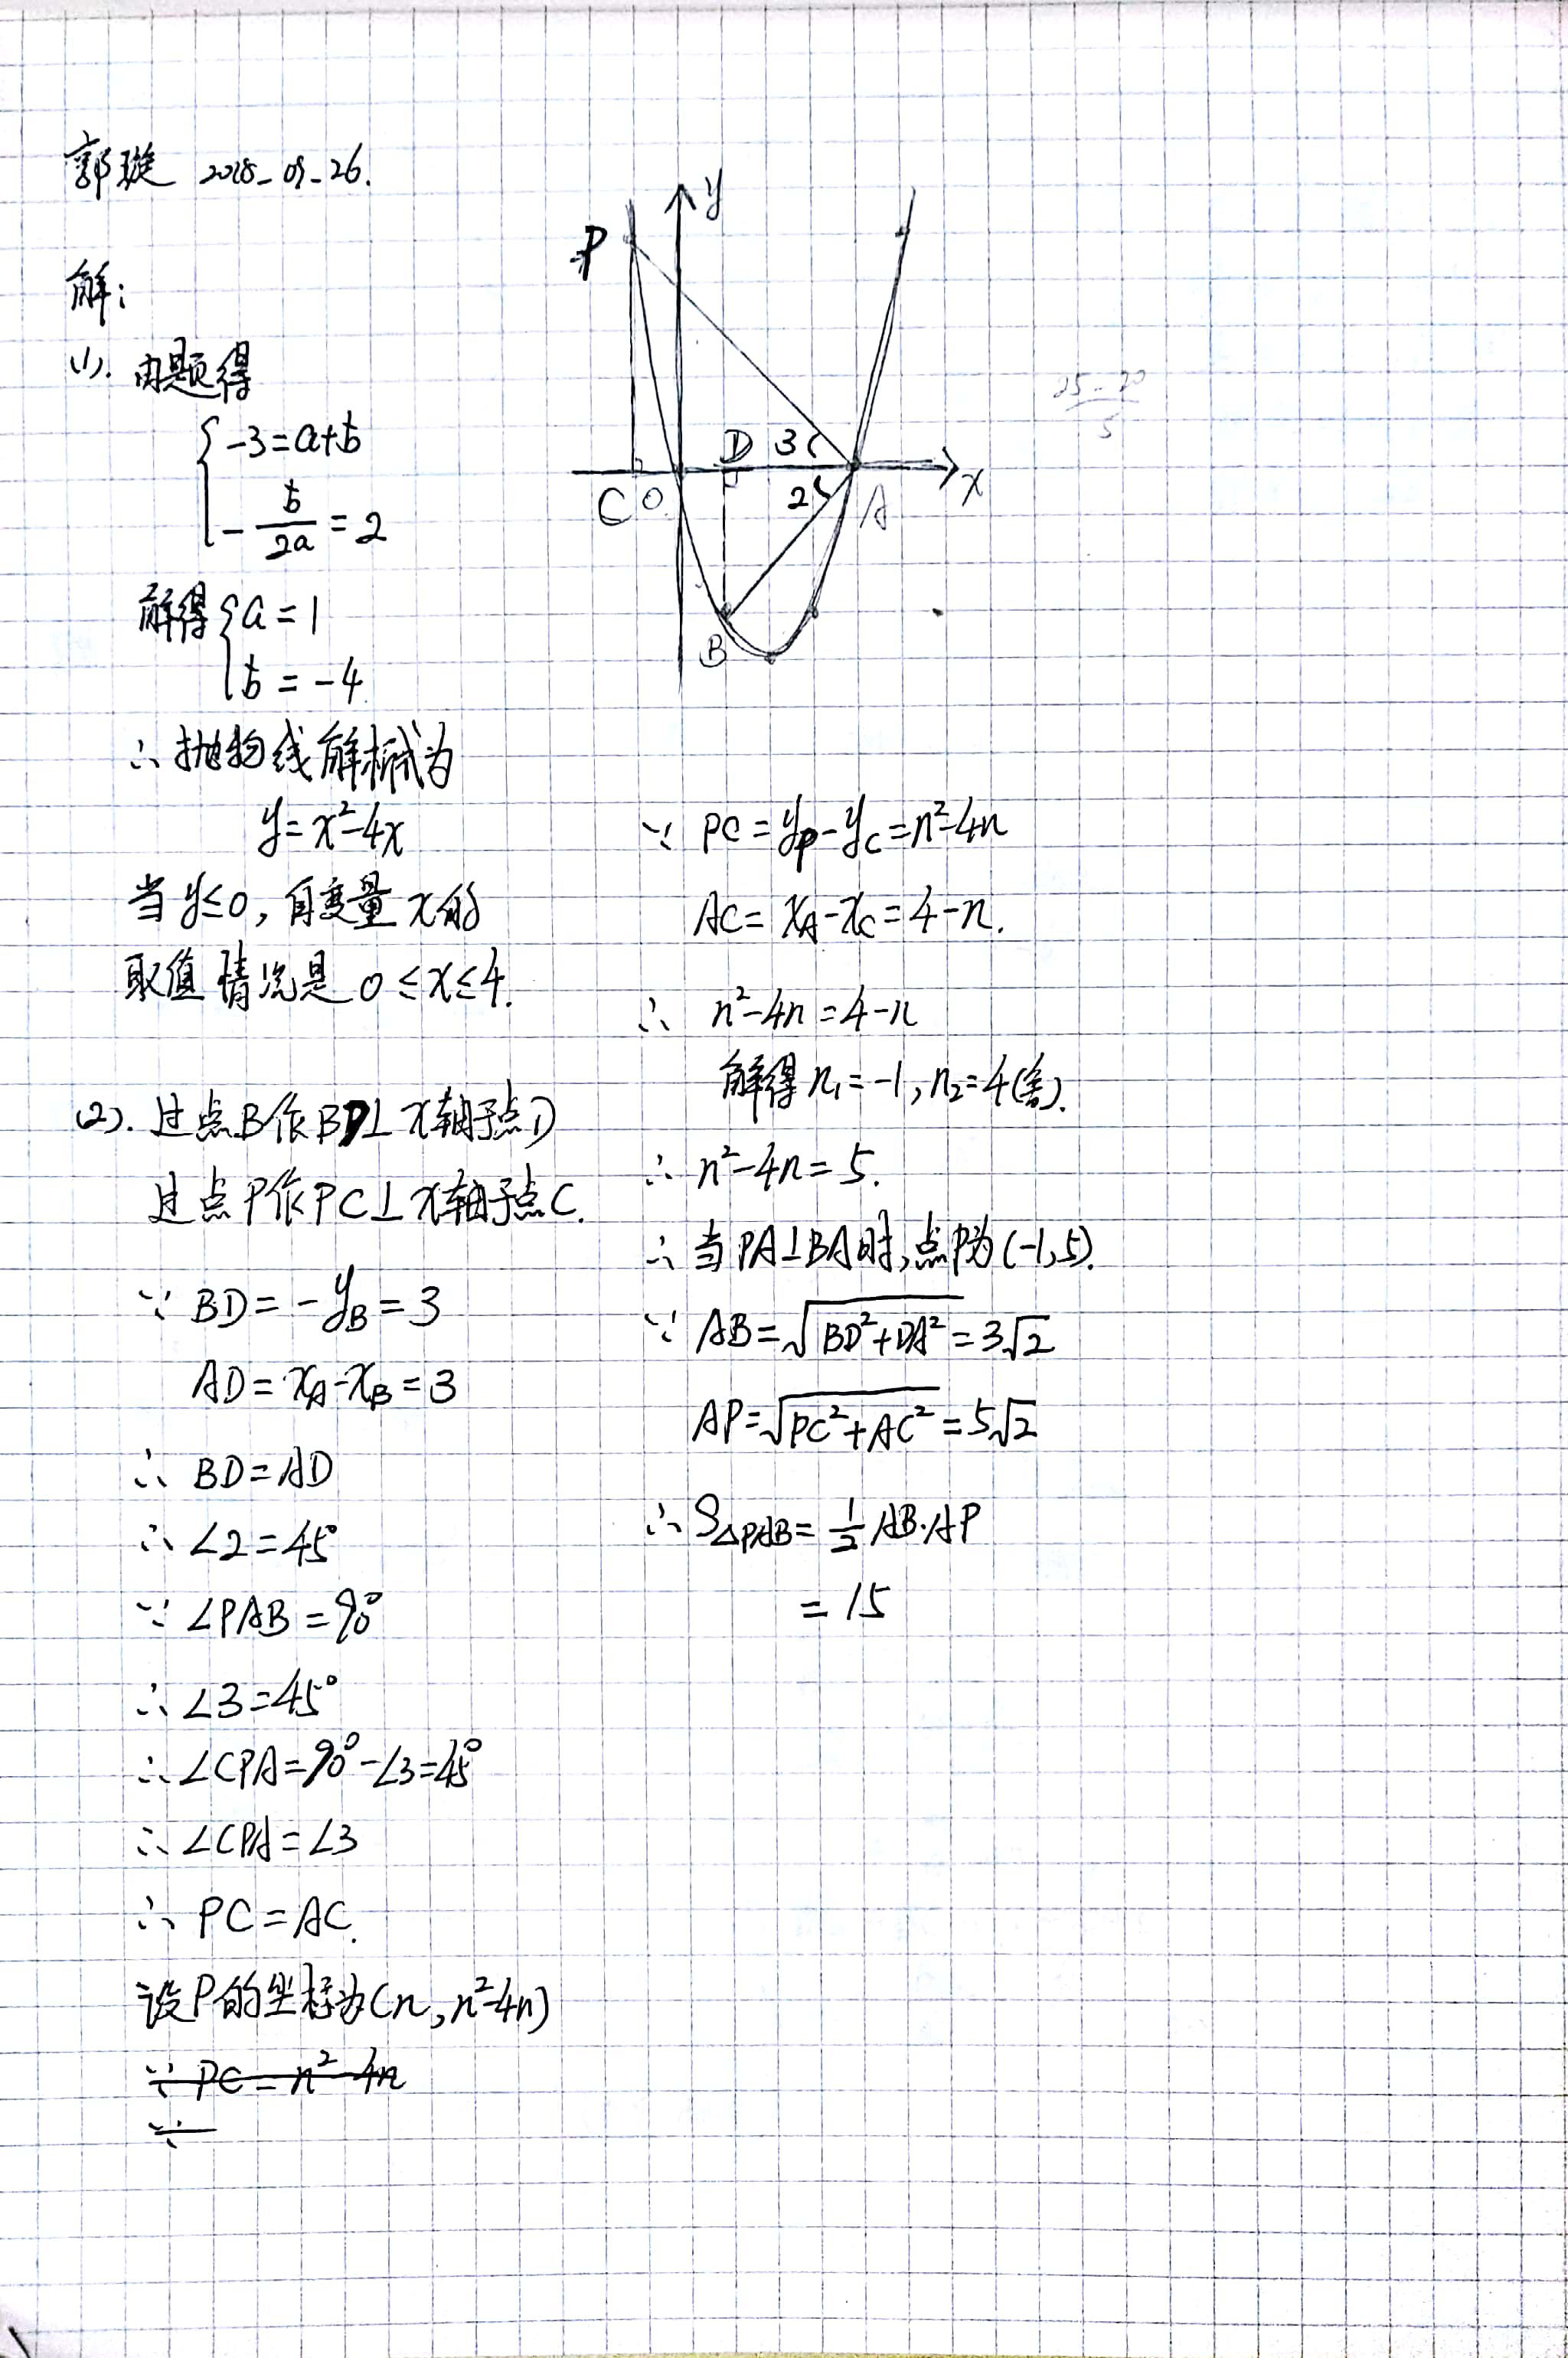 郭璇 2018-09-26.
解:
(1). 由题得
{ -3=a+b
-b/2a=2
解得{ a=1
b=-4
∴抛物线解析式为
y=x²-4x
当y≤0,自变量x的
取值情况是0≤x≤4.
(2). 过点B作BD⊥x轴于点D
过点P作PC⊥x轴于点C.
∵ BD=-y_B=3
AD=x_A-x_B=3
∴ BD=AD
∴ ∠2=45°
∵ ∠PAB=90°
∴ ∠3=45°
∴ ∠CPA=90°-∠3=45°
∴ ∠CPA=∠3
∴ PC=AC.
设P的坐标为(n,n²-4n)
∵ PC=n²-4n
∵
P
y
D 3
C O 2 A x
B
25-20
5
∵ PC=y_P-y_C=n²-4n
AC=x_A-x_C=4-n.
∴ n²-4n=4-n
解得n₁=-1,n₂=4(舍).
∴ n²-4n=5.
∴当PA⊥BA时,点P为(-1,5).
∵ AB=√(BD²+DA²)=3√2
AP=√(PC²+AC²)=5√2
∴ S△PAB=1/2 AB·AP
=15